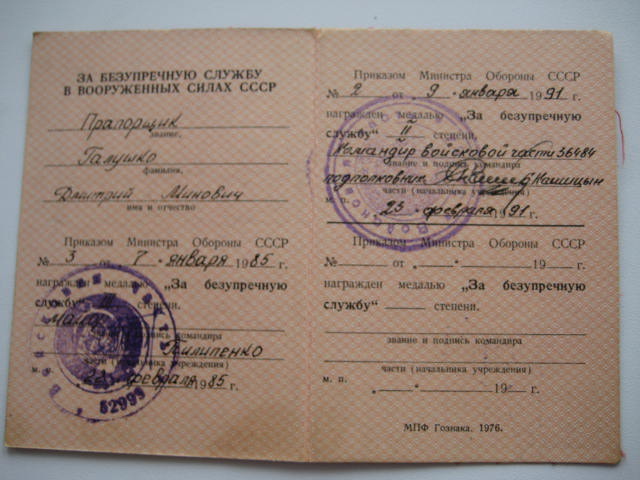 ЗА БЕЗУПРЕЧНУЮ СЛУЖБУ
В ВООРУЖЕННЫХ СИЛАХ СССР
Прапорщик
звание,
Галушко
фамилия,
Дмитрий Минович
имя и отчество
Приказом Министра Обороны СССР
№ 3 от 7 " января 1985 г.
награжден медалью „За безупречную
службу“ III степени.
Майор
подпись командира
Пилипенко
части (начальника учреждения)
м. п. февраля 1985 г.
Войсковая часть
52999
Приказом Министра Обороны СССР
№ 2 от 9 " января 1991 г.
награжден медалью „За безупречную
службу“ II степени.
Командир войсковой части 36484
звание и подпись командира
подполковник Камицын
части (начальника учреждения)
м. п. 23 " февраля 1991 г.
Войсковая
Приказом Министра Обороны СССР
№ от „ " 19 г.
награжден медалью „За безупречную
службу“ степени.
звание и подпись командира
части (начальника учреждения)
м. п. „ " 19 г.
МПФ Гознака. 1976.